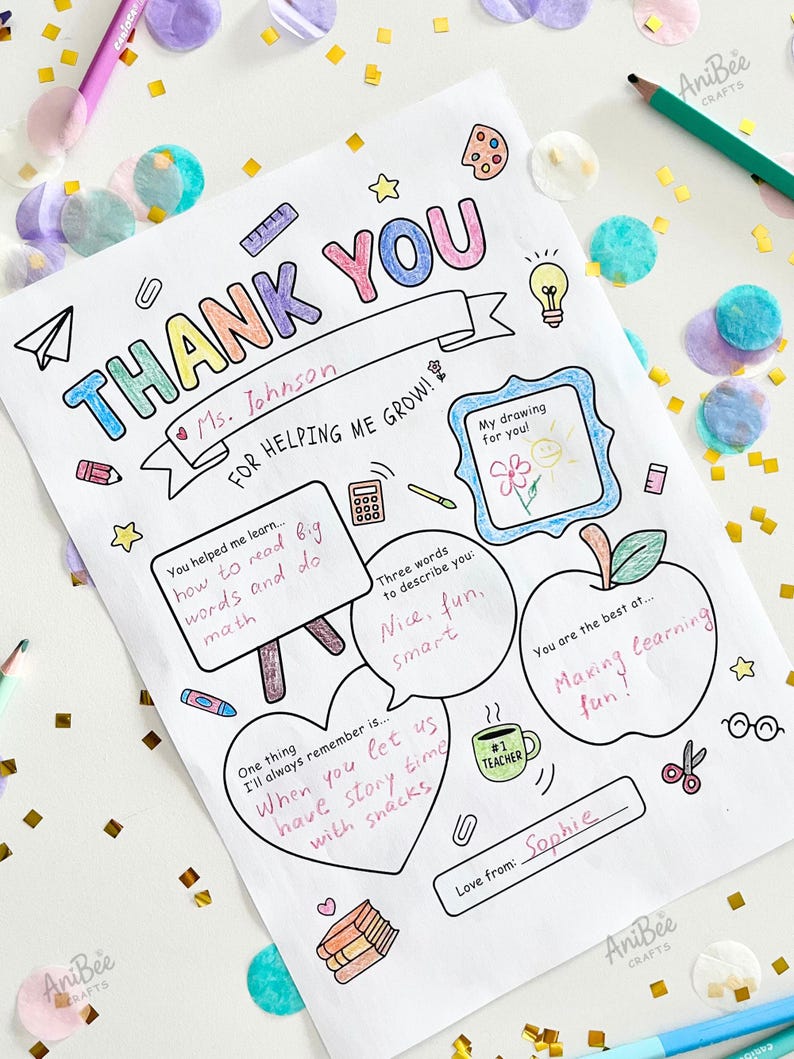 CARIOCA
AniBee
CRAFTS
THANK YOU
Ms. Johnson
FOR HELPING ME GROW!
My drawing
for you!
You helped me learn...
how to read big
words and do
math
Three words
to describe you:
Nice, fun,
smart
You are the best at...
Making learning
fun!
One thing
I'll always remember is...
When you let us
have story time
with snacks
#1
TEACHER
Love from: Sophie
AniBee
CRAFTS
AniBee
CRAFTS